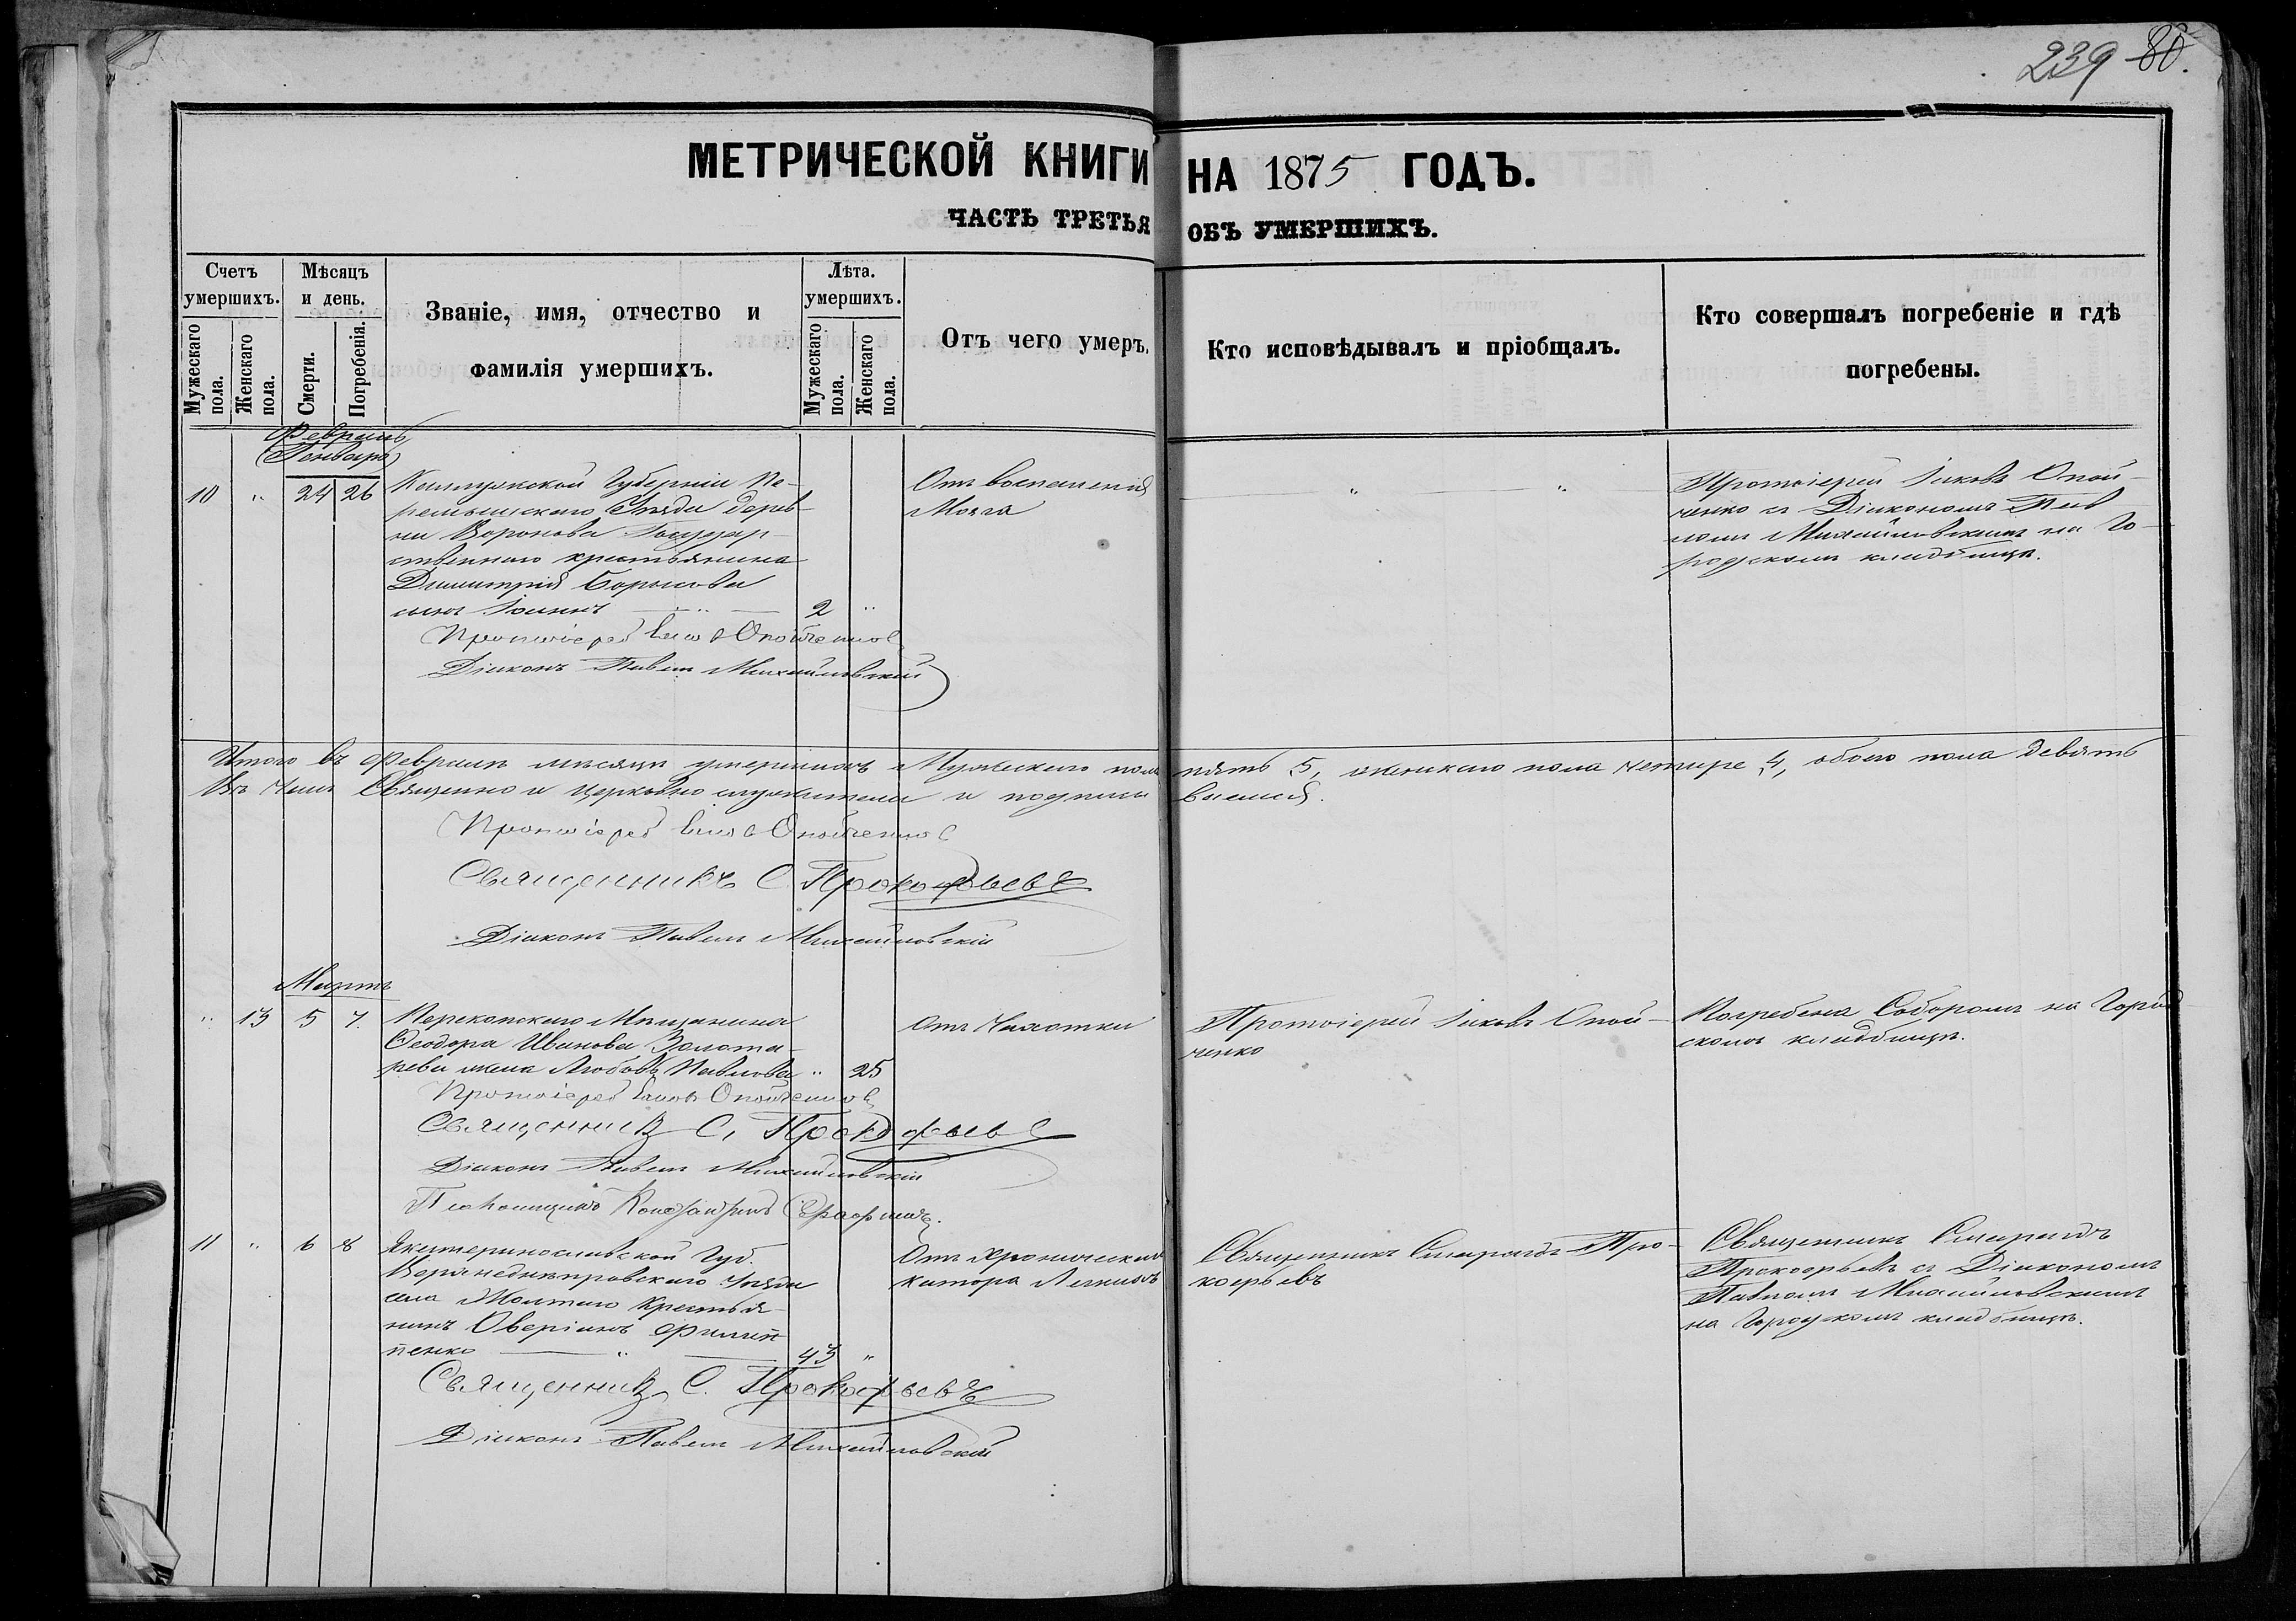 239 80.
МЕТРИЧЕСКОЙ КНИГИ НА 1875 ГОДЪ.
ЧАСТЬ ТРЕТЬЯ ОБЪ УМЕРШИХЪ.
Счетъ умершихъ.
Мужескаго пола.
Женскаго пола.
Мѣсяцъ и день.
Смерти.
Погребенія.
Званіе, имя, отчество и
фамилія умершихъ.
Лѣта. умершихъ.
Мужескаго пола.
Женскаго пола.
Отъ чего умеръ.
Кто исповѣдывалъ и пріобщалъ.
Кто совершалъ погребеніе и гдѣ
погребены.
Февраль
(Январь)
10 " 24 26
Калужской Губерніи Пе-
ремышскаго Уѣзда дерев-
ни Воронова Государ-
ственнаго крестьянина
Димитрія Борисова
сынъ Іоаннъ — " — 2 "
Отъ воспаленія
Мозга
" "
Протоіерей Іаковъ Опой-
ченко съ Діакономъ Пав
ломъ Михайловскимъ на Го-
родскомъ кладбищѣ.
Протоіерей Іаковъ Опойченко
Діаконъ Павелъ Михайловскій
Итого въ Февралѣ мѣсяцѣ умершихъ Мужескаго пола пять 5, женскаго пола четыре 4, обоего пола девять
Въ чемъ Священно и церковно служители и подписываемся.
Протоіерей Іаковъ Опойченко
Священникъ С. Прокофьевъ
Діаконъ Павелъ Михайловскій
Мартъ
" 13 5 7.
Перекопскаго Мѣщанина
Ѳеодора Иванова Золота-
рева жена Любовь Павлова " 25
Отъ Чахотки
Протоіерей Іаковъ Опой-
ченко
Погребена Соборомъ на Город
скомъ кладбищѣ.
Протоіерей Іаковъ Опойченко
Священникъ С. Прокофьевъ
Діаконъ Павелъ Михайловскій
11 " 6 8
Екатеринославской Губ.
Верхнеднѣпровскаго Уѣзда
села Крестья-
нинъ Оверіанъ Филип
пенко — " — 43 "
Отъ Хроническаго
катора Легкихъ
Священникъ Спиридъ Про-
кофьевъ
Священникъ Спиридъ
Прокофьевъ съ Діакономъ
Павломъ Михайловскимъ
на Городскомъ кладбищѣ.
Священникъ С. Прокофьевъ
Діаконъ Павелъ Михайловскій